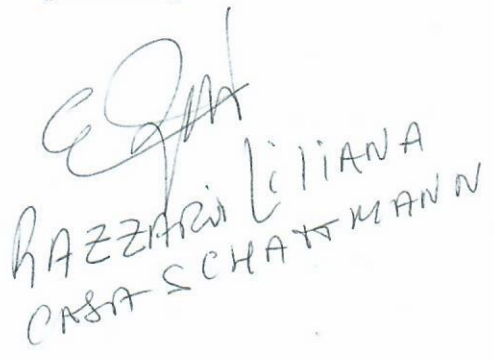 RAZZARi LiliANA
CASA SCHATTMANN